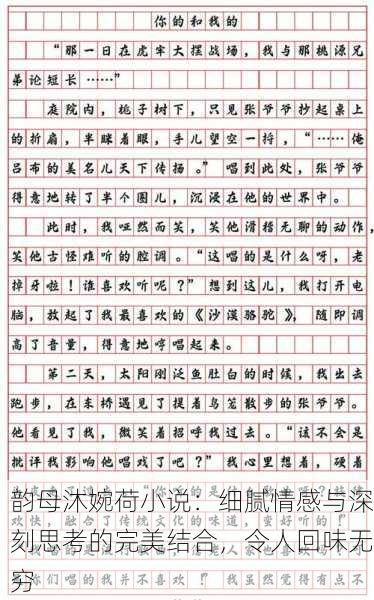 你的和我的
“那一日在虎牢大摆战场，我与那桃源兄
弟论短长……”
庭院内，桃子树下，只见张爷爷抄起桌上
的折扇，半眯着眼，手儿望空一捋，“……俺
吕布的美名儿天下传扬。”唱到此处，张爷爷
得意地转了半个圈儿，沉浸在他的世界中。
此时，我哑然而笑，笑他滑稽无聊的动作，
笑他古怪难听的腔调。“这唱的是什么呀，老
掉牙啦！谁喜欢听呢？”想到这儿，我打开电
脑，放起了我最喜欢的《沙漠骆驼》，随即调
高了音量，得意地哼唱起来。
第二天，太阳刚泛鱼肚白的时候，我出去
跑步，在东桥遇见了提着鸟笼散步的张爷爷。
他看见了我，微笑着招呼我过去。“该不会是
批评我影响他唱戏了吧？”我心里想着，硬着
韵母沐婉荷小说：细腻情感与深
刻思考的完美结合，令人回味无
穷
你们唱的我并不喜欢！”虽然觉得有点不